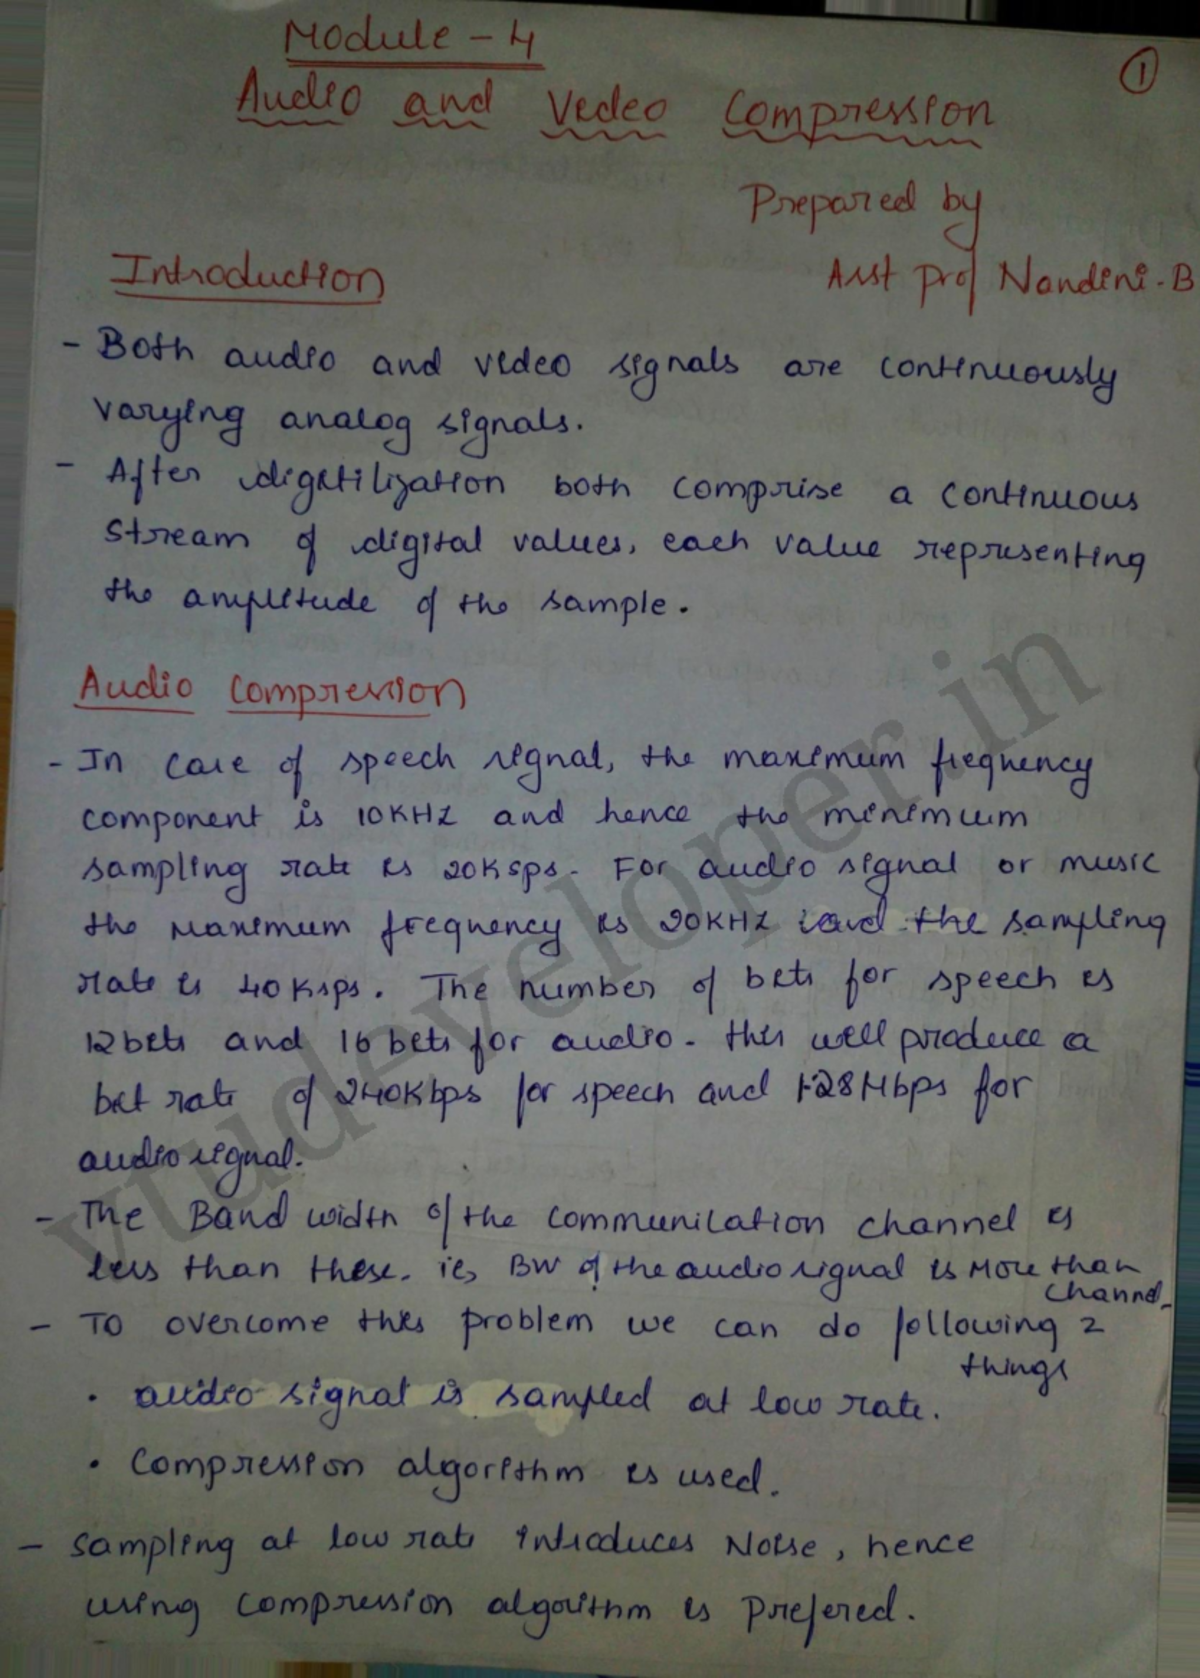 Module - 4
①
Audio and Video Compression
Prepared by
Asst Prof Nandini - B
Introduction
- Both audio and video signals are continuously
varying analog signals.
- After digitilization both comprise a continuous
stream of digital values, each value representing
the amplitude of the sample.
Audio Compression
- In case of speech signal, the maximum frequency
component is 10KHZ and hence the minimum
sampling rate is 20Ksps. For audio signal or music
the Maximum frequency is 20KHZ and the sampling
rate is 40Ksps. The number of bits for speech is
12bits and 16 bits for audio. this will produce a
bit rate of 240Kbps for speech and 1.28Mbps for
audio signal.
- The Band width of the communication channel is
less than these. ie, BW of the audio signal is More than
channel.
- To overcome this problem we can do following 2
things
. audio signal is sampled at low rate.
. Compression algorithm is used.
- Sampling at low rate introduces Noise, hence
using compression algorithm is Prefered.
vtudeveloper.in